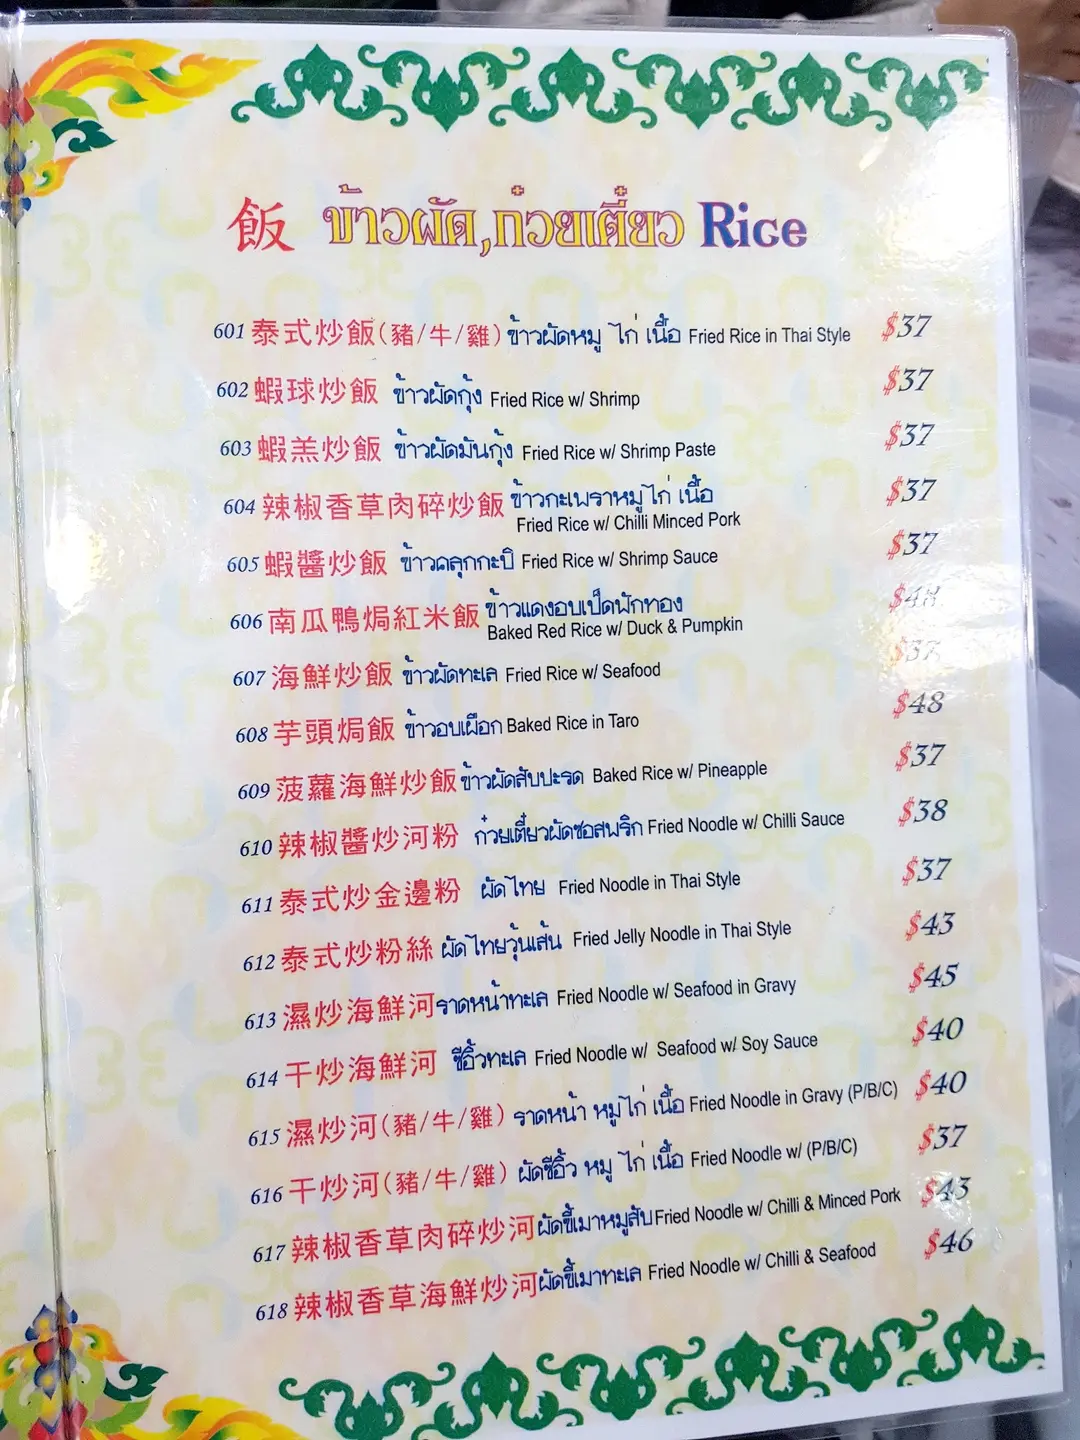 飯 ข้าวผัด,ก๋วยเตี๋ยว Rice
601 泰式炒飯(豬/牛/雞) ข้าวผัดหมู ไก่ เนื้อ Fried Rice in Thai Style $37
602 蝦球炒飯 ข้าวผัดกุ้ง Fried Rice w/ Shrimp $37
603 蝦羔炒飯 ข้าวผัดมันกุ้ง Fried Rice w/ Shrimp Paste $37
604 辣椒香草肉碎炒飯 ข้าวกะเพราหมู ไก่ เนื้อ $37
Fried Rice w/ Chilli Minced Pork
605 蝦醬炒飯 ข้าวคลุกกะปิ Fried Rice w/ Shrimp Sauce $37
606 南瓜鴨焗紅米飯 ข้าวแดงอบเป็ดฟักทอง $48
Baked Red Rice w/ Duck & Pumpkin
607 海鮮炒飯 ข้าวผัดทะเล Fried Rice w/ Seafood $37
608 芋頭焗飯 ข้าวอบเผือก Baked Rice in Taro $48
609 菠蘿海鮮炒飯 ข้าวผัดสับปะรด Baked Rice w/ Pineapple $37
610 辣椒醬炒河粉 ก๋วยเตี๋ยวผัดซอสพริก Fried Noodle w/ Chilli Sauce $38
611 泰式炒金邊粉 ผัดไทย Fried Noodle in Thai Style $37
612 泰式炒粉絲 ผัดไทยวุ้นเส้น Fried Jelly Noodle in Thai Style $43
613 濕炒海鮮河 ราดหน้าทะเล Fried Noodle w/ Seafood in Gravy $45
614 干炒海鮮河 ซีอิ้วทะเล Fried Noodle w/ Seafood w/ Soy Sauce $40
615 濕炒河(豬/牛/雞) ราดหน้า หมู ไก่ เนื้อ Fried Noodle in Gravy (P/B/C) $40
616 干炒河(豬/牛/雞) ผัดซีอิ้ว หมู ไก่ เนื้อ Fried Noodle w/ (P/B/C) $37
617 辣椒香草肉碎炒河 ผัดขี้เมาหมูสับ Fried Noodle w/ Chilli & Minced Pork $43
618 辣椒香草海鮮炒河 ผัดขี้เมาทะเล Fried Noodle w/ Chilli & Seafood $46